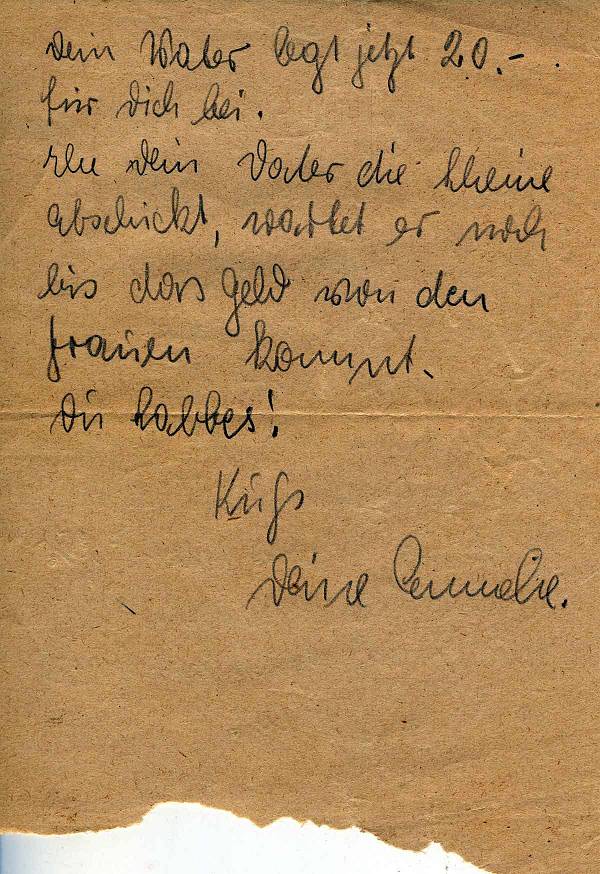 Dein Vater legt jetzt 20.- .
für Dich bei.
Ehe Dein Vater die kleine
abschickt, wartet er noch
bis das Geld von den
Frauen kommt.
Du
Kuß
Deine